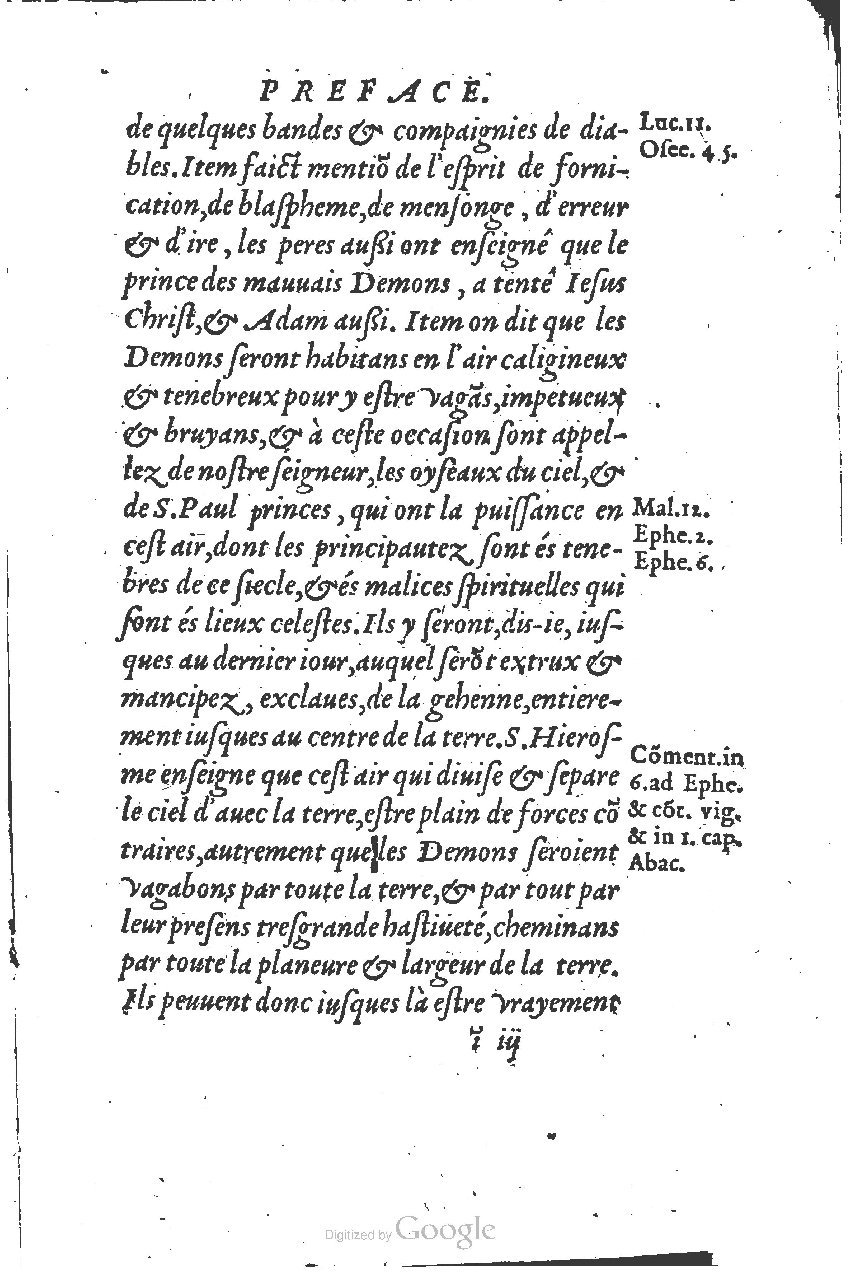 PREFACE.
de quelques bandes & compaignies de dia-
bles. Item faict mentiõ de l'eſprit de forni-
cation, de blaſpheme, de menſonge, d'erreur
& d'ire, les peres auſſi ont enſeignê que le
prince des mauuais Demons, a tentê Ieſus
Chriſt, & Adam auſſi. Item on dit que les
Demons ſeront habitans en l'air caligineux
& tenebreux pour y eſtre vagãs, impetueux
& bruyans, & à ceſte occaſion ſont appel-
lez de noſtre ſeigneur, les oyſeaux du ciel, &
de S. Paul princes, qui ont la puiſſance en
ceſt air, dont les principautez ſont és tene-
bres de ce ſiecle, & és malices ſpirituelles qui
ſont és lieux celeſtes. Ils y ſeront, dis-ie, iuſ-
ques au dernier iour, auquel ſerõt extrux &
mancipez, exclaues, de la gehenne, entiere-
ment iuſques au centre de la terre. S. Hieroſ-
me enſeigne que ceſt air qui diuiſe & ſepare
le ciel d'auec la terre, eſtre plain de forces cõ
traires, autrement que les Demons ſeroient
vagabons par toute la terre, & par tout par
leur preſens treſgrande haſtiueté, cheminans
par toute la planeure & largeur de la terre.
Ils peuuent donc iuſques là eſtre vrayement
ĩ iij
Luc.11.
Oſee. 4.5.
Mal.12.
Ephe.2.
Ephe.6.
Cõment.in
6.ad Ephe.
& cõt. vig.
& in 1. cap.
Abac.
Digitized by Google